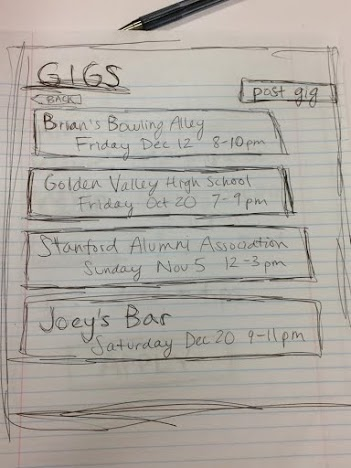 GIGS
BACK
post gig
Brian's Bowling Alley
Friday Dec 12 8-10pm
Golden Valley High School
Friday Oct 20 7-9pm
Stanford Alumni Association
Sunday Nov 5 12-3pm
Joey's Bar
Saturday Dec 20 9-11pm